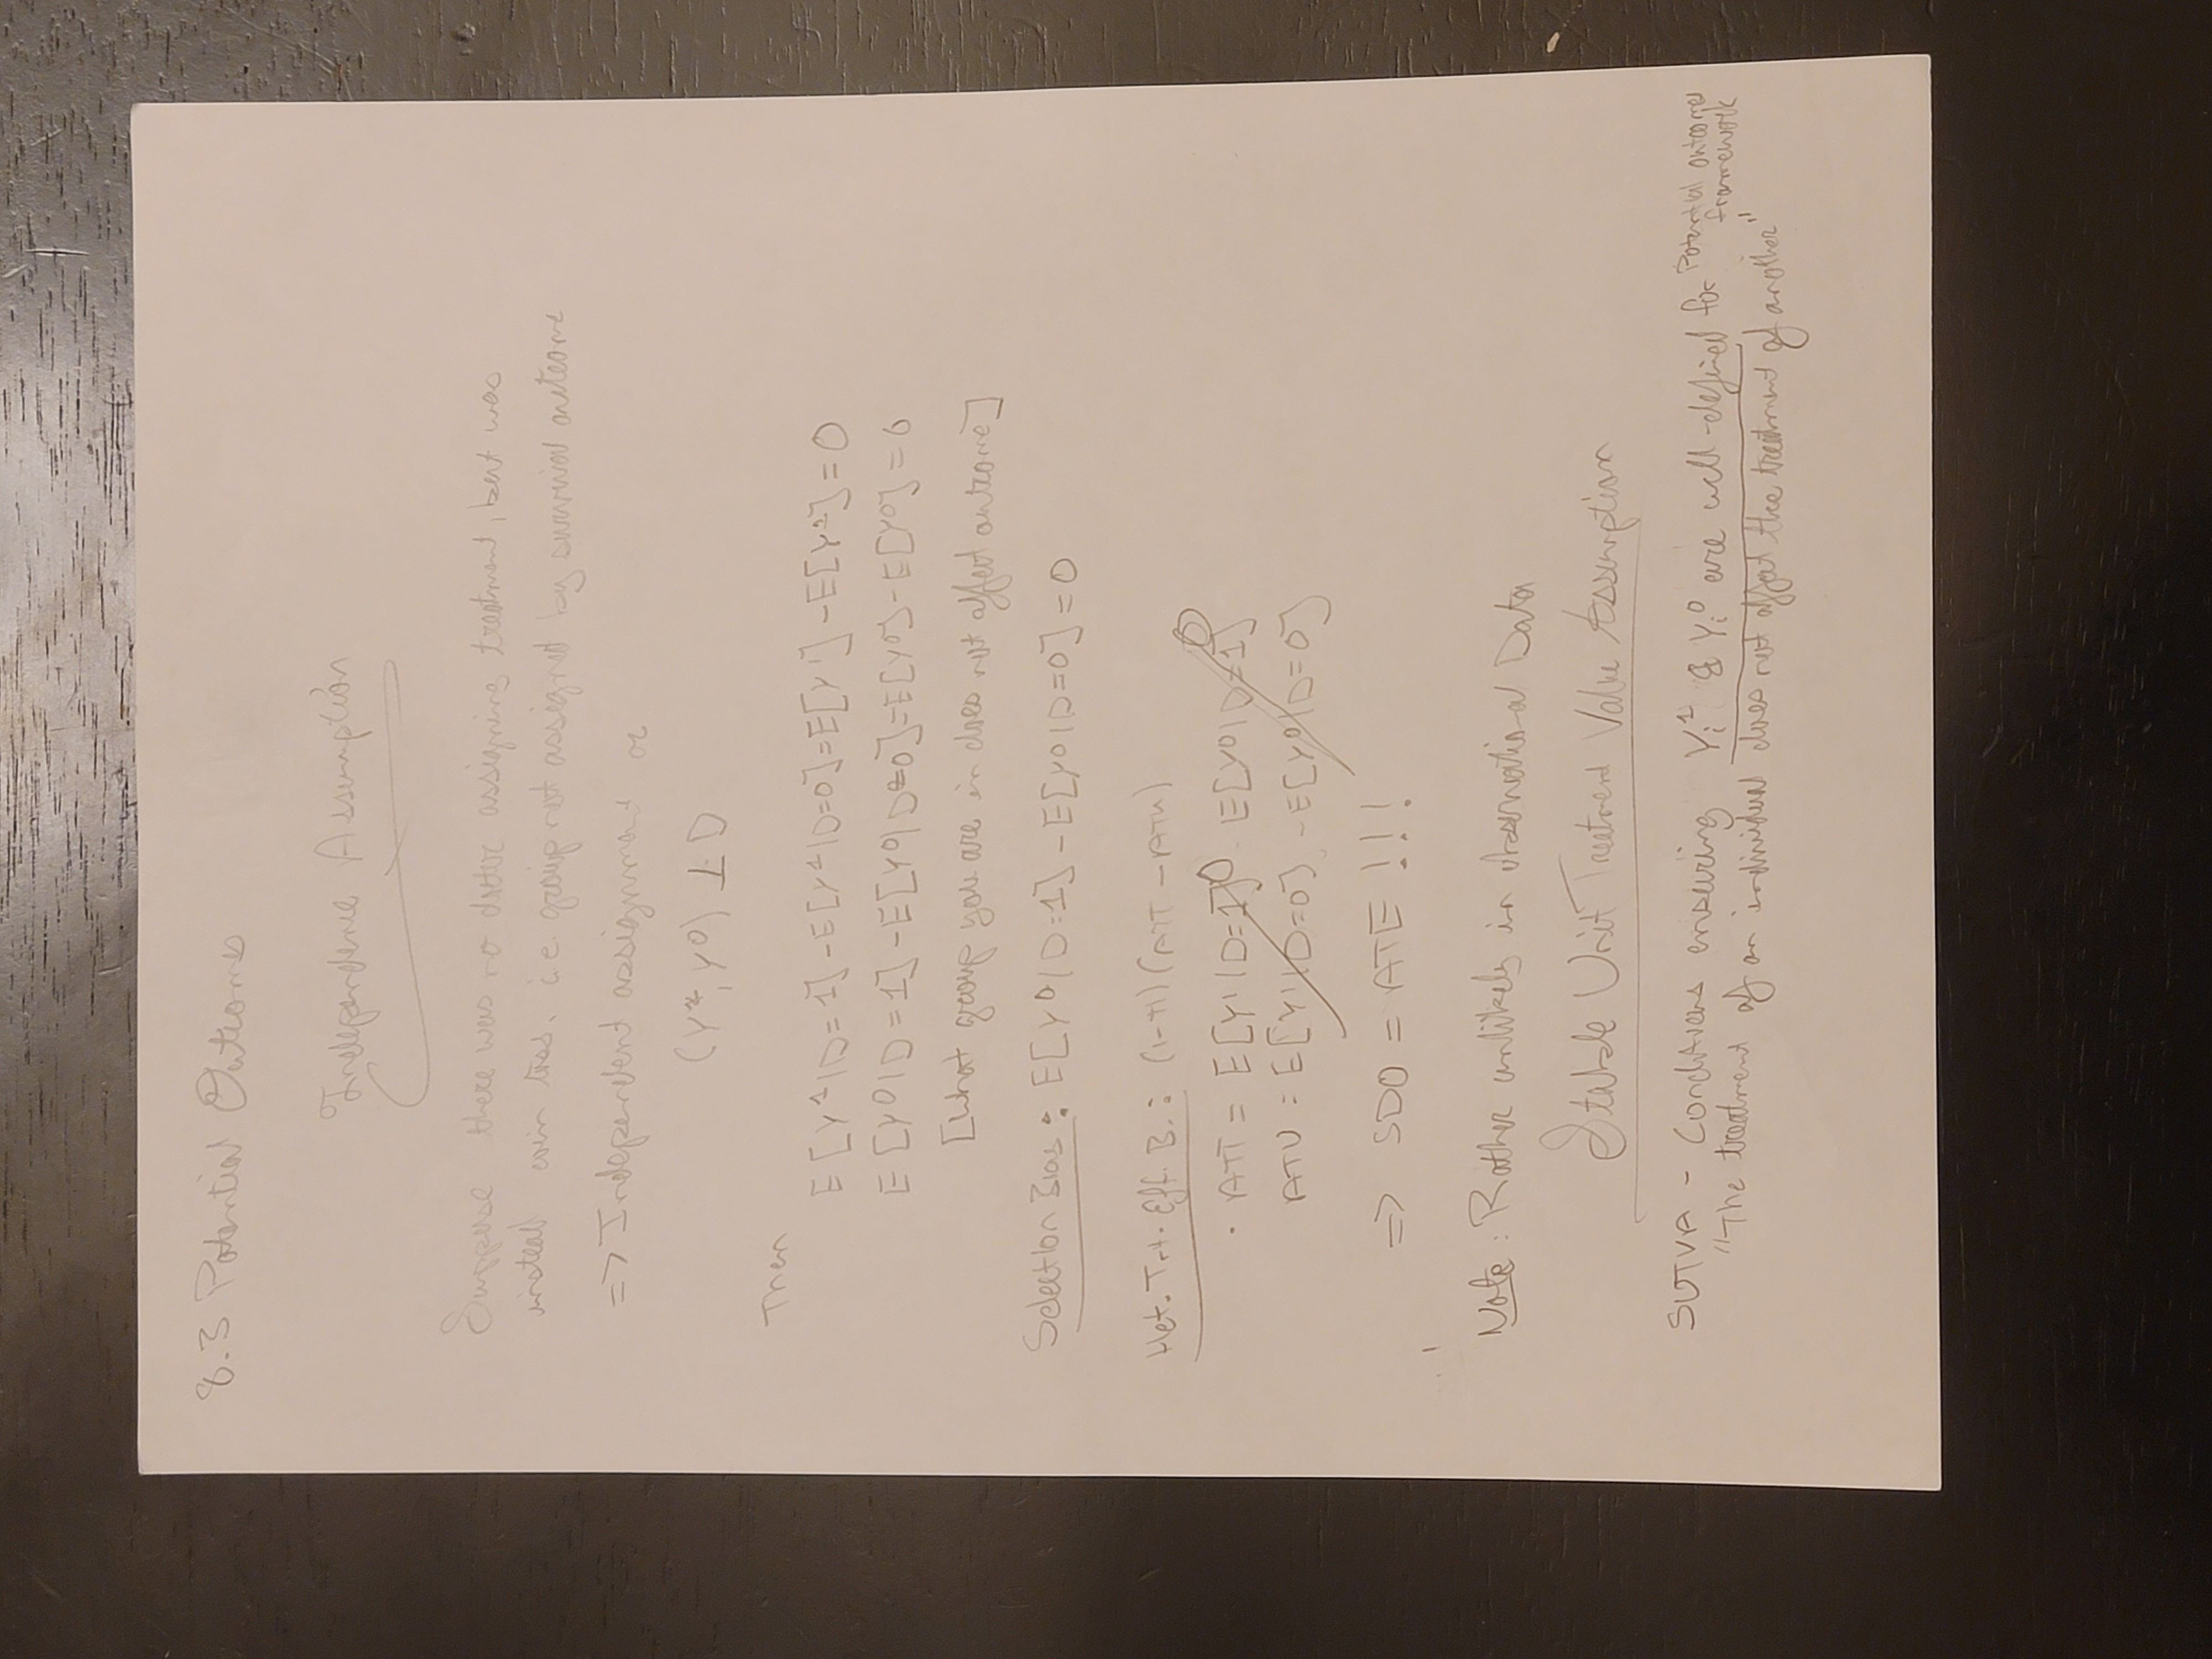 8.3 Potential Outcomes
Independence Assumption
Suppose there was no doctor assigning treatment, but was
instead coin toss. i.e. group not assigned by survival outcome
=> Independent assignment or
(Y¹, Y⁰) ⊥ D
Then
E[Y¹|D=1] - E[Y¹|D=0] = E[Y¹] - E[Y¹] = 0
E[Y⁰|D=1] - E[Y⁰|D=0] = E[Y⁰] - E[Y⁰] = 0
[What group you are in does not affect outcome]
Selection Bias: E[Y⁰|D=1] - E[Y⁰|D=0] = 0
Het. Trt. Eff. B.: (1-π)(ATT - ATU)
· ATT = E[Y¹|D=1] 0 E[Y⁰|D=1] 0
ATU = E[Y¹|D=0] - E[Y⁰|D=0]
=> SDO = ATE !!!
Note: Rather unlikely in observational Data
Stable Unit Treatment Value Assumption
SUTVA - Conditions ensuring Yᵢ¹ & Yᵢ⁰ are well-defined for Potential outcomes framework
"The treatment of an individual does not affect the treatment of another"